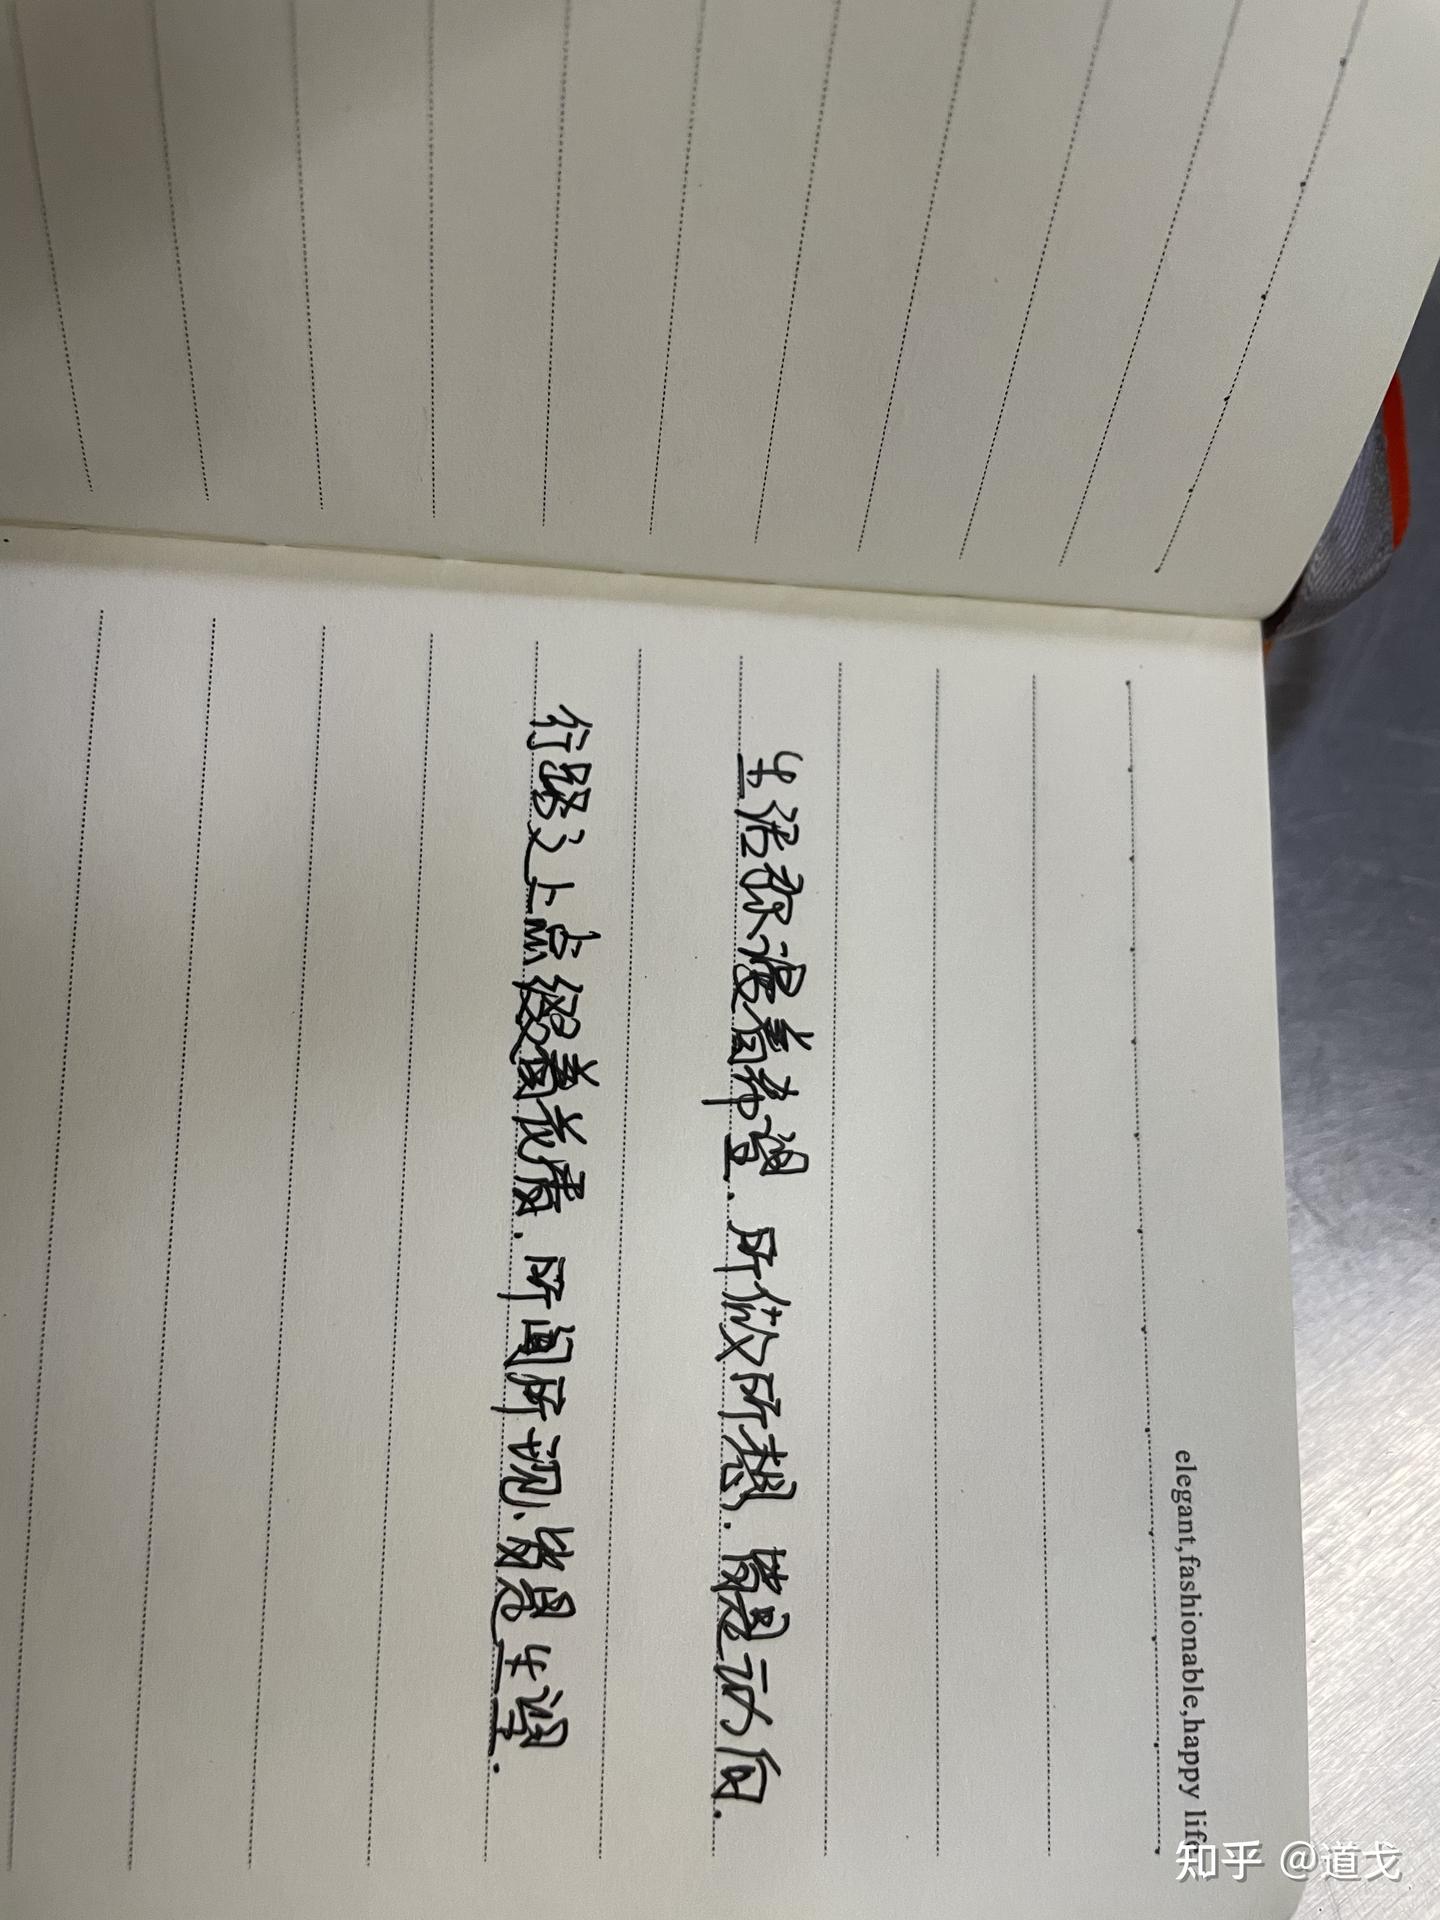 elegant,fashionable,happy life
生活弥漫着希望.所做所想.皆是动向.
行路之上点缀着花質.所闻所观.皆是生望.
知乎 @道戈